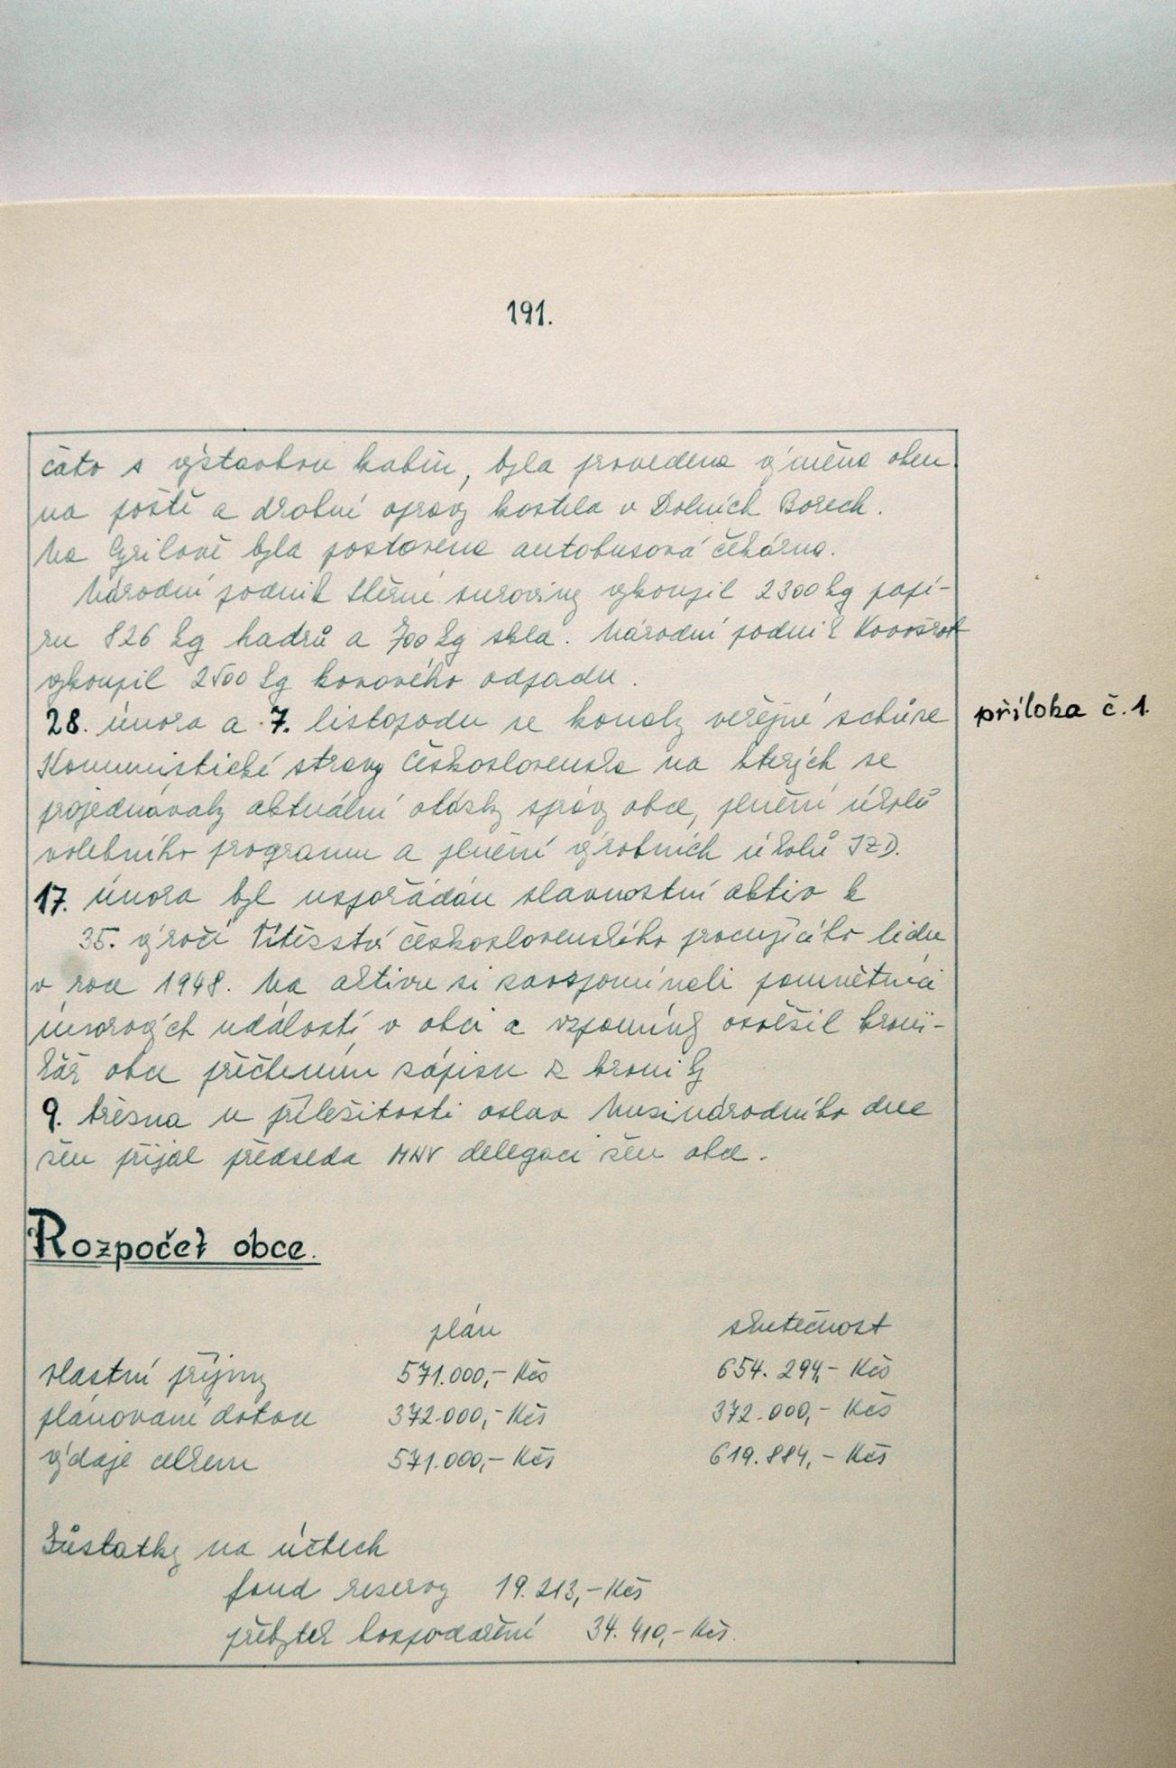 191.
čato s výstavbou kabin, byla provedena výměna oken
na poště a drobné opravy kostela v Dolních Borech.
Na Cyrilově byla postavena autobusová čekárna.
Národní podnik Sběrné suroviny vykoupil 2300 kg papí-
ru 826 kg hadrů a 700 kg skla. Národní podnik Kovošrot
vykoupil 2500 kg kovového odpadu.
28. února a 7. listopadu se konaly veřejné schůze
příloha č. 1.
Komunistické strany Československa na kterých se
projednávaly aktuální otázky správy obce, plnění úkolů
volebního programu a plnění výrobních úkolů JZD.
17. února byl uspořádán slavnostní aktiv k
35. výročí Vítězství československého pracujícího lidu
v roce 1948. Na aktivu si zavzpomínali pamětníci
únorových událostí v obci a vzpomínky osvěžil kroni-
kář obce přečtením zápisu z kroniky
9. března u příležitosti oslav Mezinárodního dne
žen přijal předseda MNV delegaci žen obce.
Rozpočet obce.
plán skutečnost
vlastní příjmy 571.000,- Kčs 654.294,- Kčs
plánované dotace 372.000,- Kčs 372.000,- Kčs
výdaje celkem 571.000,- Kčs 619.884,- Kčs
Zůstatky na účtech
fond reservy 19.213,- Kčs
přebytek hospodaření 34.410,- Kčs.